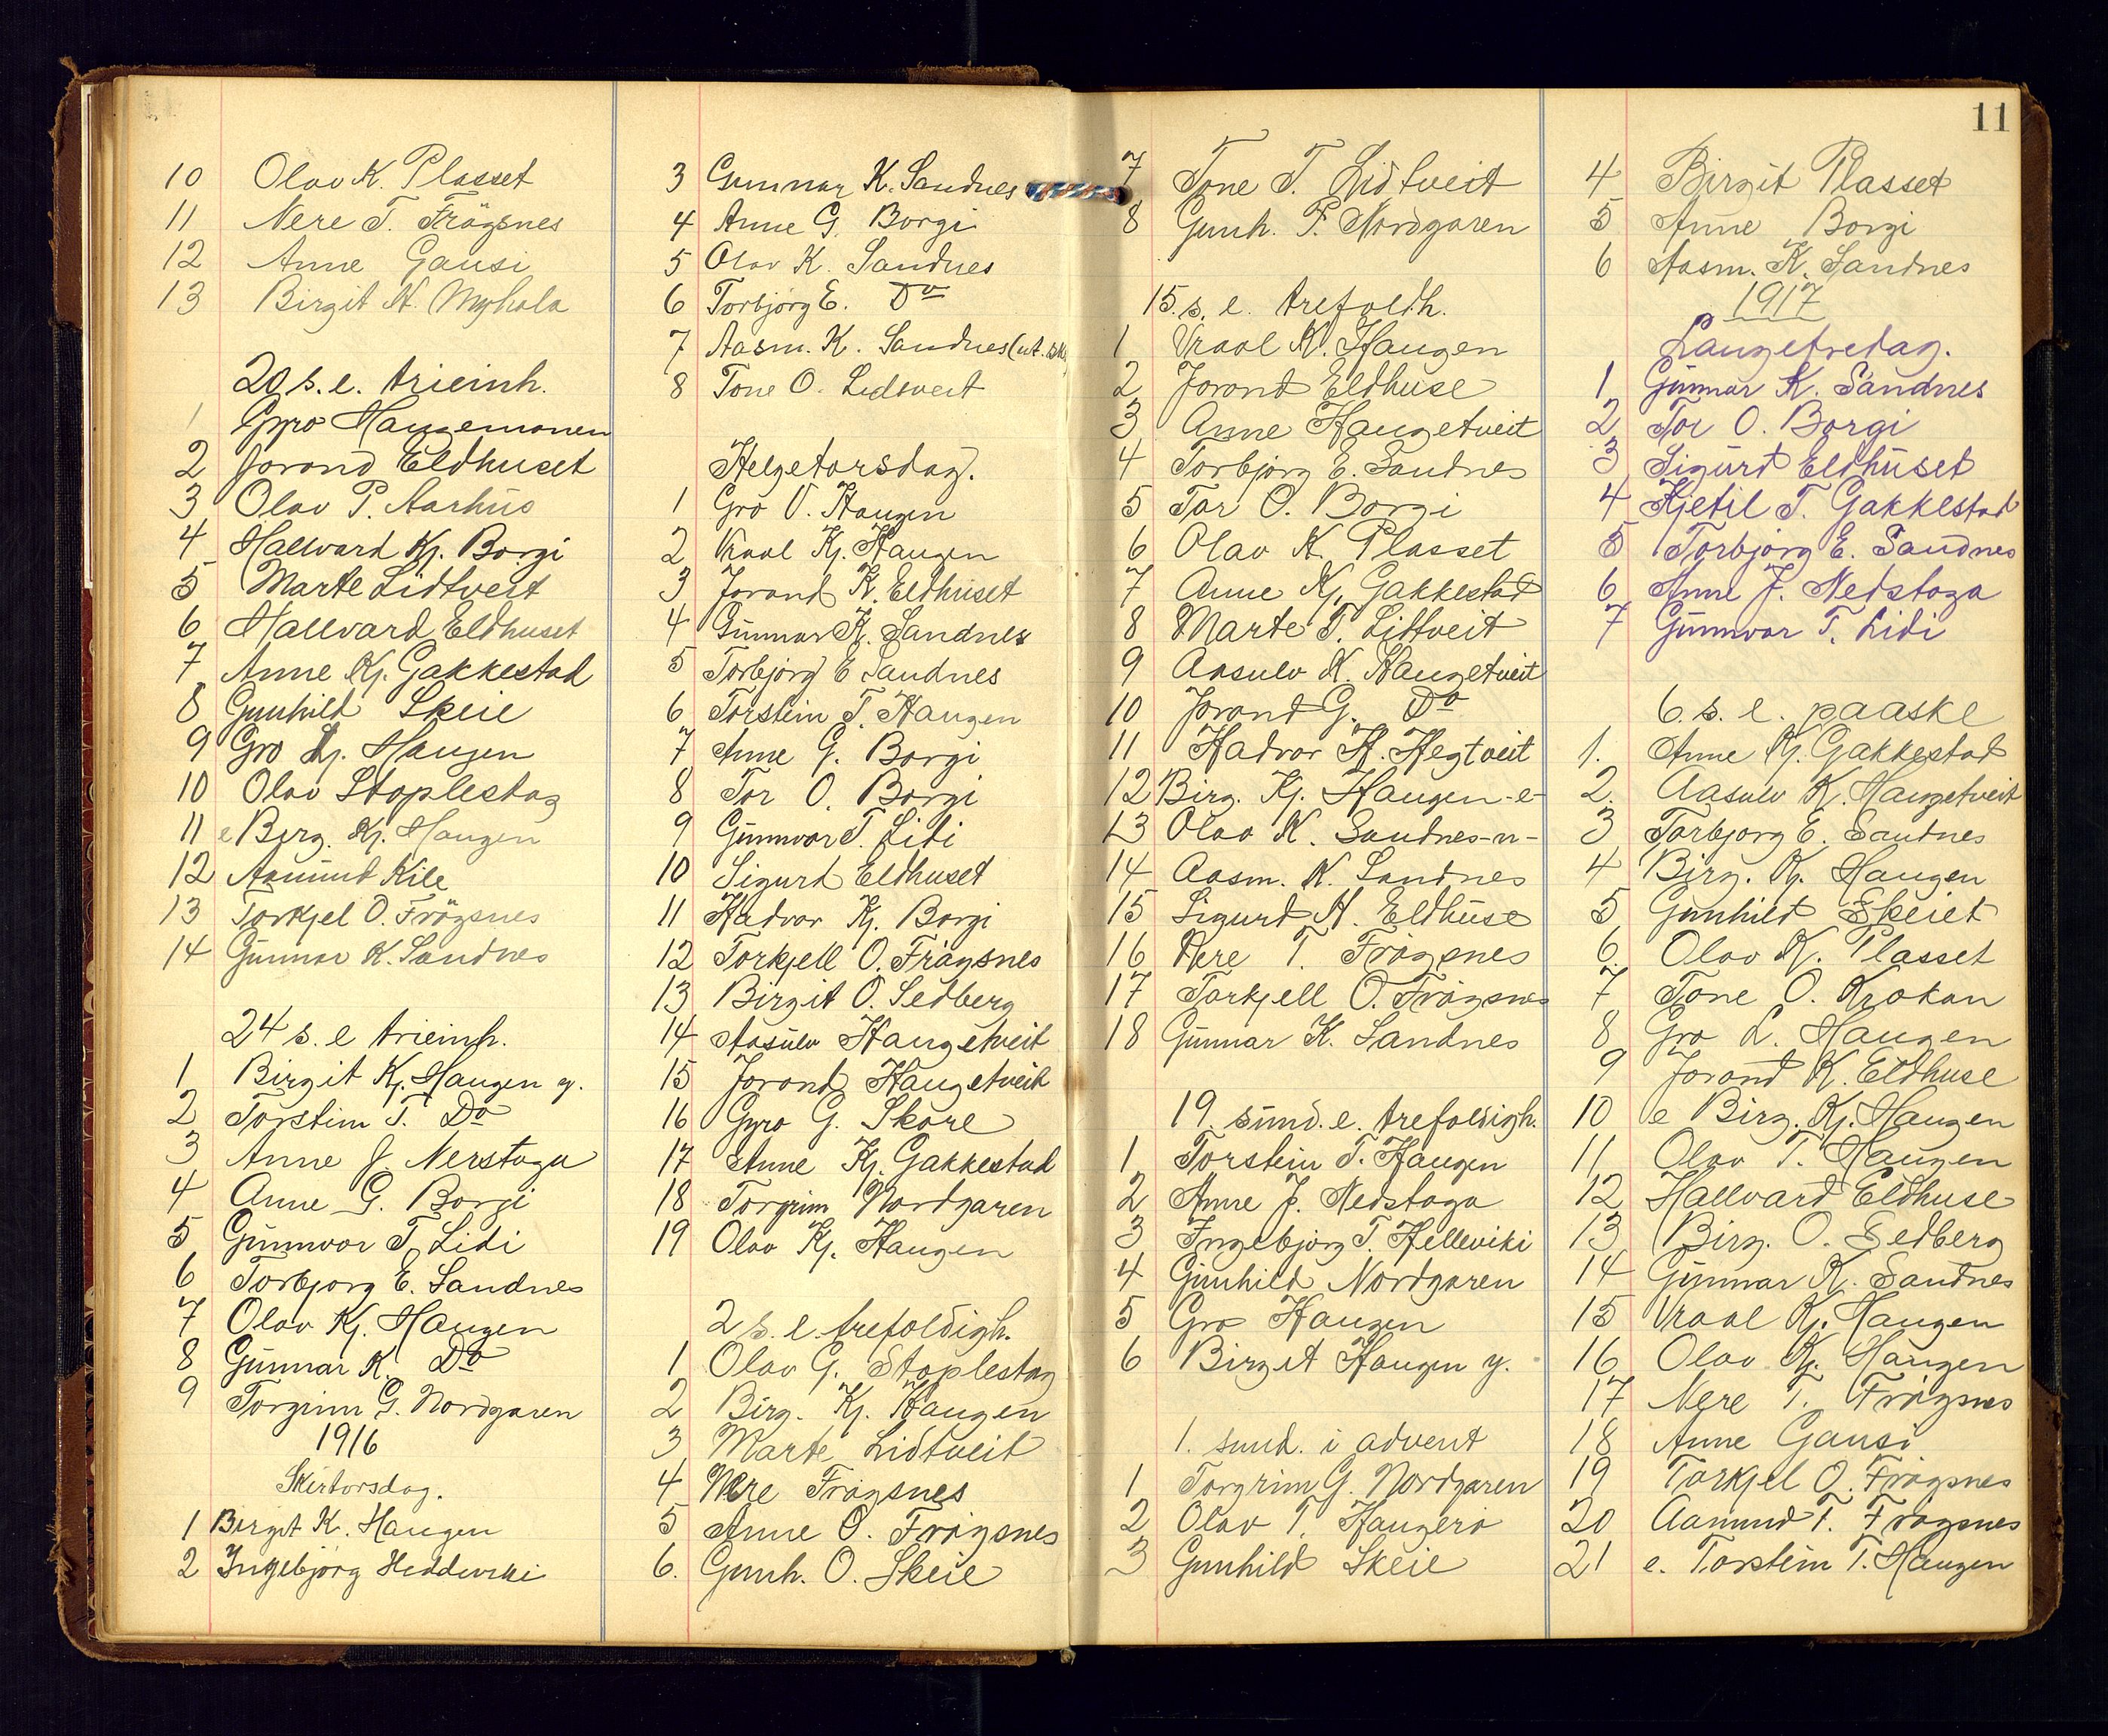 10 Olav K. Plasset
11 Nere T. Frögsnes
12 Anne Gausi
13 Birgit H. Myhola
20 s. e. trieinh.
1 Gyro Haugemonen
2 Jorond Eldhuset
3 Olav P. Aarhus
4 Hallvard Kj. Borgi
5 Marte Lidtveit
6 Hallvard Eldhuset
7 Anne Kj. Gakkestad
8 Gunhild Skeie
9 Gro Kj. Haugen
10 Olav Stoplestog
11 e Birg. Kj. Haugen
12 Aamund Kile
13 Torkjel O. Frögsnes
14 Gunnar K. Sandnes
24 s. e trieinh.
1 Birgit Kj. Haugen y.
2 Torstein T. Do
3 Anne J. Nerstoga
4 Anne G. Borgi
5 Gunnvor T. Lidi
6 Torbjorg E. Sandnes
7 Olav Kj. Haugen
8 Gunnar K. Do
9 Torgrim G. Nordgaren
1916
Skirtorsdag.
1 Birgit K. Haugen
2 Ingebjörg Heddeviki
3 Gunnar K. Sandnes
4 Anne G. Borgi
5 Olav K. Sandnes
6 Torbjörg E. Do
7 Aasm. K. Sandnes (ut. sk.
8 Tone O. Lidtveit
Helgetorsdag.
1 Gro V. Haugen
2 Vraal Kj. Haugen
3 Jorond K. Eldhuset
4 Gunnar K. Sandnes
5 Torbjörg E Sandnes
6 Torstein T. Haugen
7 Anne G. Borgi
8 Tor O. Borgi
9 Gunnvor T. Lidi
10 Sigurd Eldhuset
11 Hadvor Kj. Borgi
12 Torkjell O. Frågsnes
13 Birgit O. Sedberg
14 Aasulv Haugetveit
15 Jorond Haugetveit
16 Gyro G. Skore
17 Anne Kj. Gakkestad
18 Torgrim Nordgaren
19 Olav Kj. Haugen
2 s. e. trefoldigh.
1 Olav G. Stoplestog
2 Birg. Kj. Haugen
3 Marte Lidtveit
4 Nere Frögsnes
5 Anne O. Frögsnes
6. Gunh. O. Skeie
11
7 Tone T. Lidtveit
8 Gunh. P. Nordgaren
15. s. e. trefoldh.
1 Vraal K. Haugen
2 Jorond Eldhuse
3 Anne Haugetveit
4 Torbjörg E. Sandnes
5 Tor O. Borgi
6 Olav K. Plasset
7 Anne Kj. Gakkestad
8 Marte T. Littveit
9 Aasulv K. Haugetveit
10 Jorond G. Do
11 Hadvor H. Hegtveit
12 Birg. Kj. Haugen -e-
13 Olav K. Sandnes -n-
14 Aasm. K. Sandnes
15 Sigurd H. Eldhuse
16 Nere T. Frögsnes
17 Torkjell O. Frögsnes
18 Gunnar K. Sandnes
19. sund. e. trefoldigh.
1 Torstein T. Haugen
2 Anne J. Nedstoga
3 Ingebjörg T. Helleviki
4 Gunhild Nordgaren
5 Gro Haugen
6 Birgit Haugen y.
1. sund. i advent
1 Torgrim G. Nordgaren
2 Olav T. Haugerö
3 Gunhild Skeie
4 Birgit Plasset
5 Anne Borgi
6 Aasm. K. Sandnes
1917
Langefredag.
1 Gunnar K. Sandnes
2 Tor O. Borgi
3 Sigurd Eldhuset
4 Kjetil T. Gakkestad
5 Torbjörg E. Sandnes
6 Anne J. Nedstoga
7 Gunnvor T. Lidi
6. s. e. paaske
1. Anne Kj. Gakkestad
2. Aasulv K. Haugetveit
3 Torbjorg E. Sandnes
4 Birg. Kj. Haugen
5 Gunhild Skeiet
6. Olav K. Plasset
7 Tone O. Krokan
8 Gro L. Haugen
9 Jorond K. Eldhuse
10 e Birg. Kj. Haugen
11 Olav T. Haugen
12 Hallvard Eldhuse
13 Birg. O. Sedberg
14 Gunnar K. Sandnes
15 Vraal Kj. Haugen
16 Olav Kj. Haugen
17 Nere T. Frögsnes
18 Anne Gausi
19 Torkjel O. Frögsnes
20 Aamund T. Frögsnes
21 e. Torstein T. Haugen